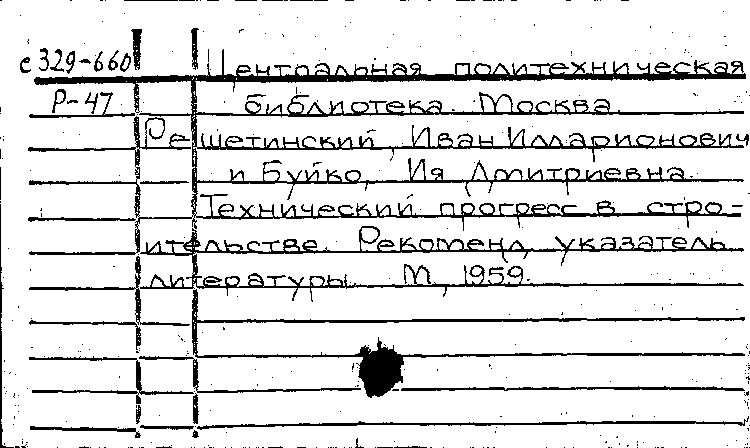 с329-660 Центральная политехническая
Р-47 библиотека. Москва.
Решетинский, Иван Илларионович
и Буйко, Ия Дмитриевна.
Технический прогресс в стро-
ительстве. Рекоменд. указатель
литературы. М., 1959.